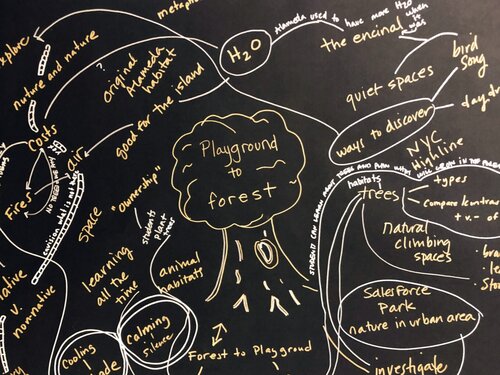 metapho
Alameda used to have more H2O when
it was
explore
H2O
the encinal
bird
song
nuture and nature
?
original
Alameda
habitat
quiet spaces
good for the island
daydr
ways to discover
costs
Playground
to
forest
NYC
Highline
air
habitats
trees
types
compare & contrast
Fires
"ownership"
space
students
plant
trees
natural
climbing
spaces
learning
all the
time
animal
habitats
Salesforce
Park
nature in urban area
native
v.
nonnative
calming
silence
cooling
Forest to Playground
investigate